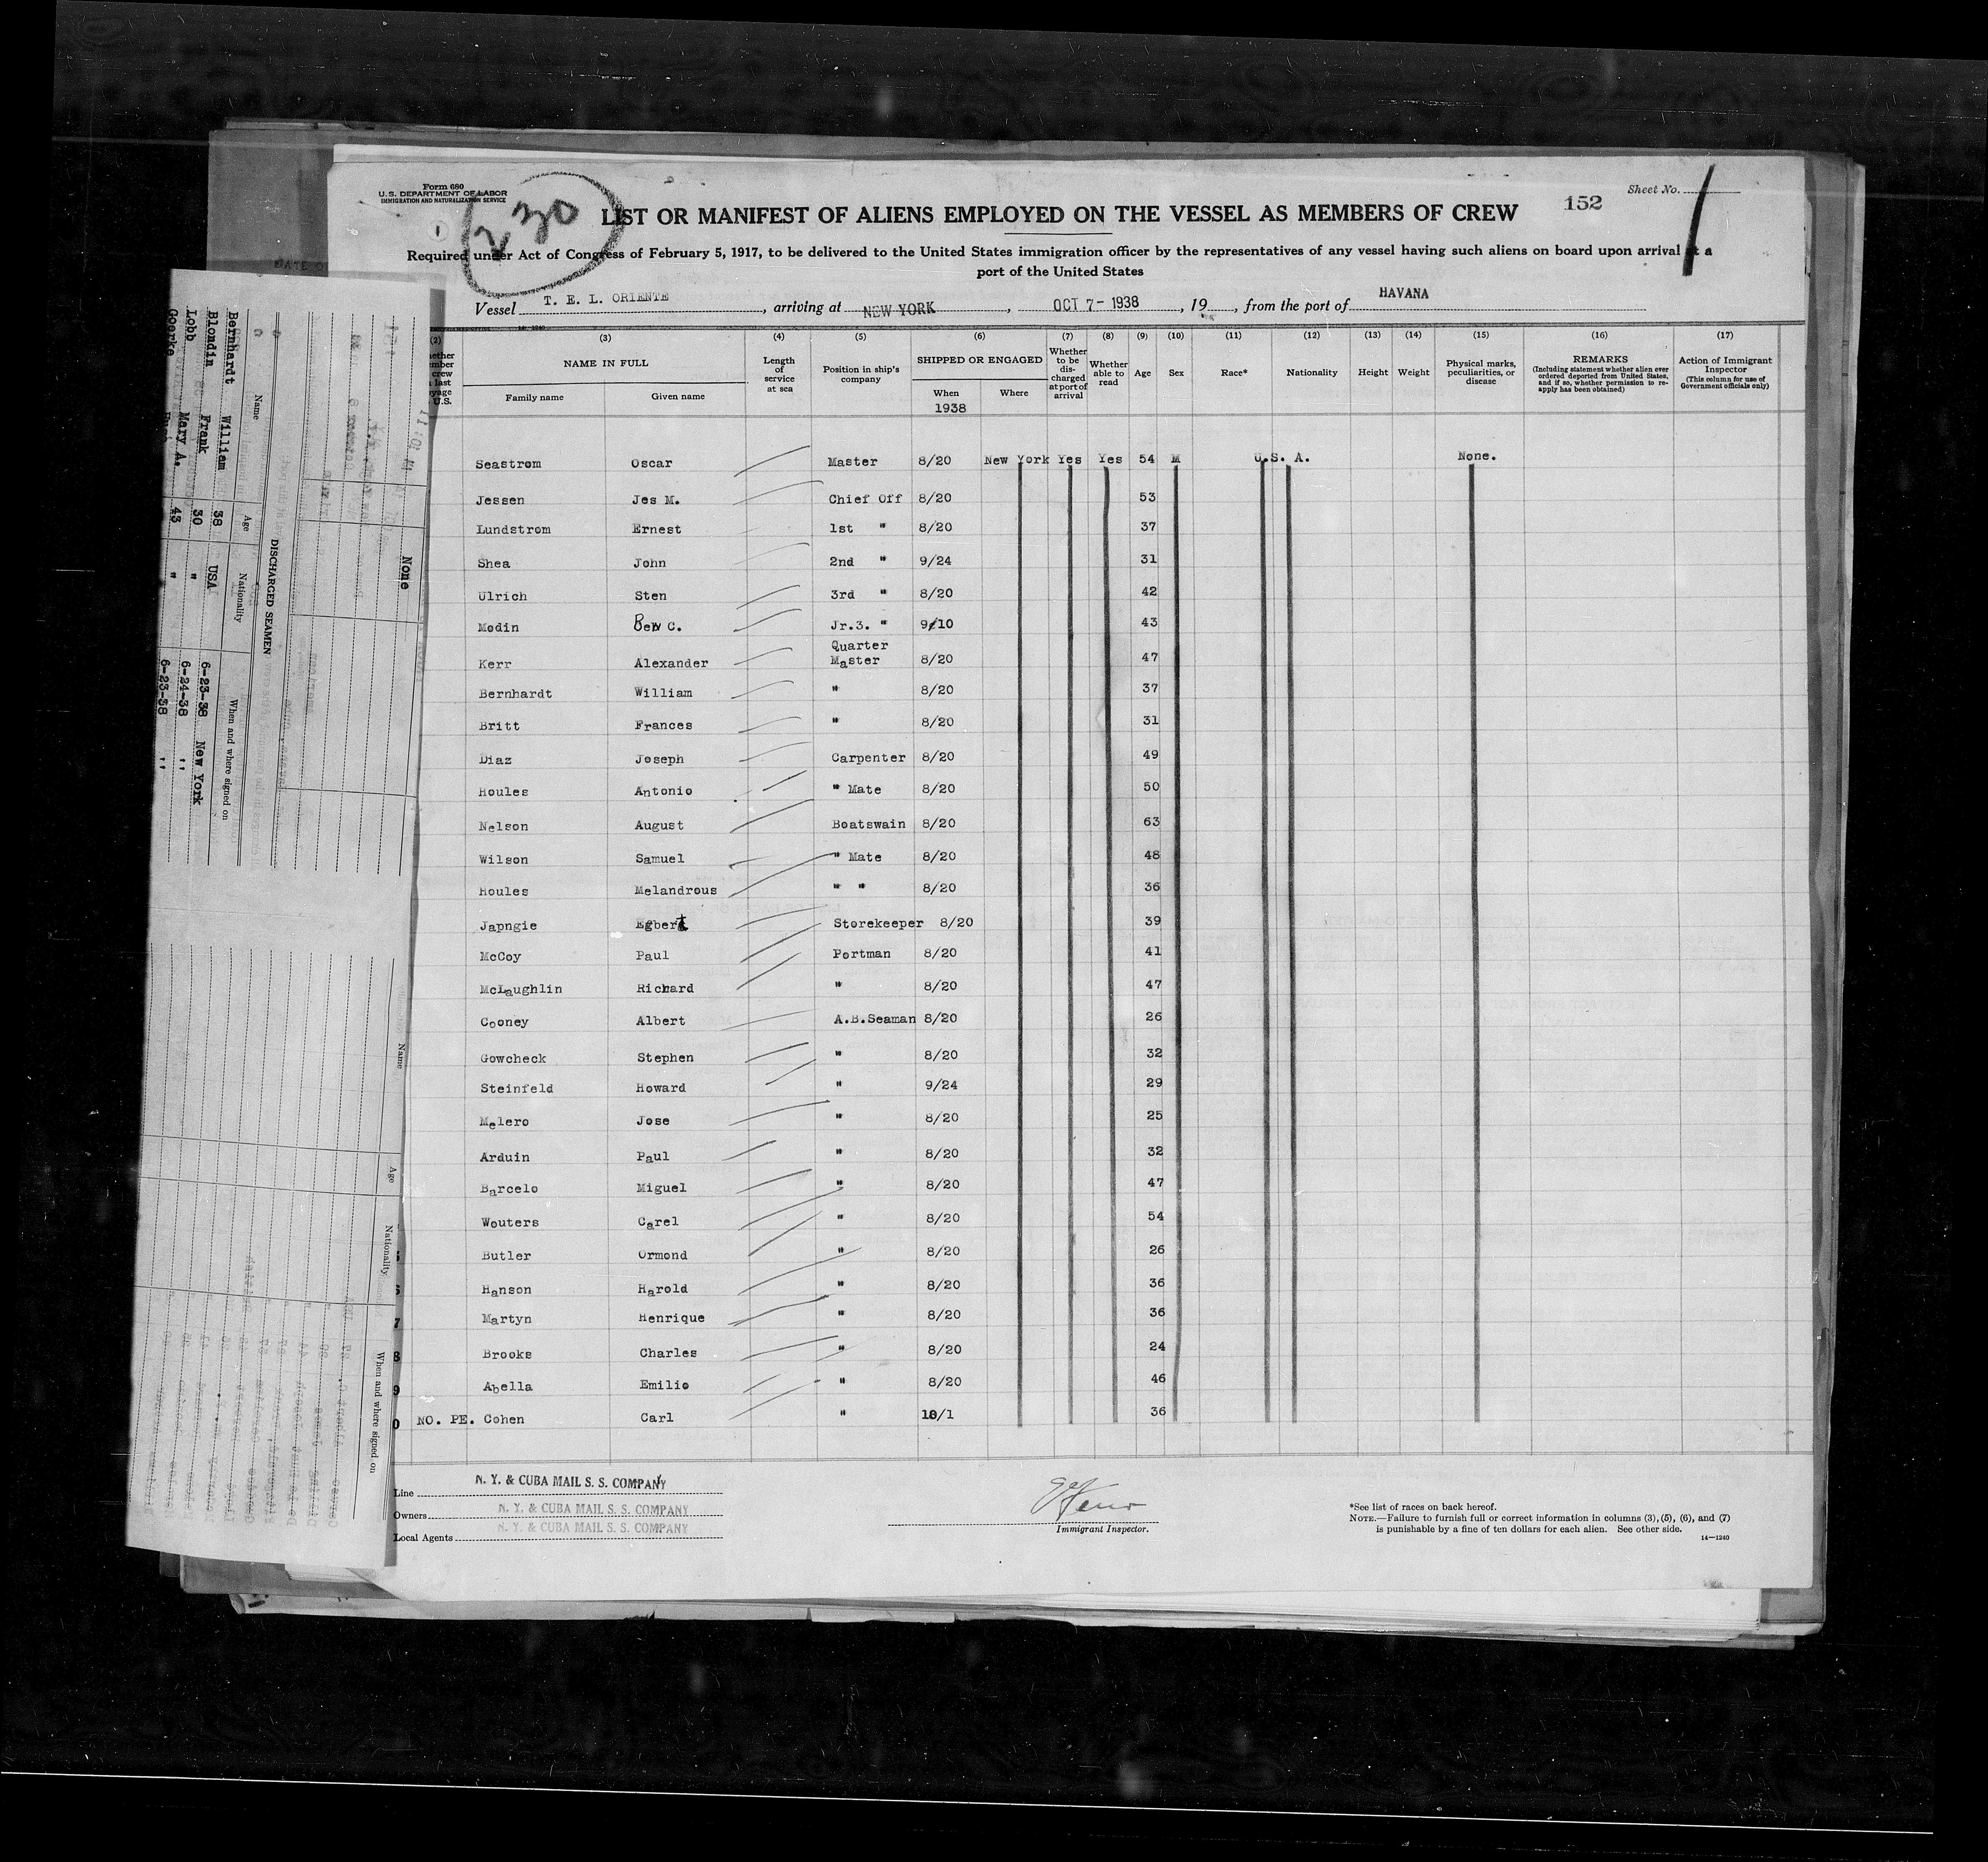 Form 680
U.S. DEPARTMENT OF LABOR
IMMIGRATION AND NATURALIZATION SERVICE
1
230
LIST OR MANIFEST OF ALIENS EMPLOYED ON THE VESSEL AS MEMBERS OF CREW
152
Sheet No. 1
Required under Act of Congress of February 5, 1917, to be delivered to the United States immigration officer by the representatives of any vessel having such aliens on board upon arrival at a
port of the United States
Vessel T. E. L. ORIENTE, arriving at NEW YORK, OCT 7- 1938, 19, from the port of HAVANA
(2) (3) (4) (5) (6) (7) (8) (9) (10) (11) (12) (13) (14) (15) (16) (17)
NAME IN FULL
Family name Given name
Length of service at sea
Position in ship's company
SHIPPED OR ENGAGED
When Where
1938
Whether to be discharged at port of arrival
Whether able to read
Age
Sex
Race*
Nationality
Height
Weight
Physical marks, peculiarities, or disease
REMARKS
(Including statement whether alien ever ordered deported from United States, and if so, whether permission to reapply has been obtained)
Action of Immigrant Inspector
(This column for use of Government officials only)
Seastrom Oscar Master 8/20 New York Yes Yes 54 M U.S. A. None.
Jessen Jes M. Chief Off 8/20 53
Lundstrom Ernest 1st " 8/20 37
Shea John 2nd " 9/24 31
Ulrich Sten 3rd " 8/20 42
Modin C. Jr.3. " 9/10 43
Kerr Alexander Quarter Master 8/20 47
Bernhardt William " 8/20 37
Britt Frances " 8/20 31
Diaz Joseph Carpenter 8/20 49
Houles Antonio " Mate 8/20 50
Nelson August Boatswain 8/20 63
Wilson Samuel " Mate 8/20 48
Houles Melandrous " " 8/20 36
Japngie Egbert Storekeeper 8/20 39
McCoy Paul Portman 8/20 41
McLaughlin Richard " 8/20 47
Cooney Albert A.B.Seaman 8/20 26
Gowcheck Stephen " 8/20 32
Steinfeld Howard " 9/24 29
Melero Jose " 8/20 25
Arduin Paul " 8/20 32
Barcelo Miguel " 8/20 47
Wouters Carel " 8/20 54
Butler Ormond " 8/20 26
Hanson Harold " 8/20 36
Martyn Henrique " 8/20 36
Brooks Charles " 8/20 24
Abella Emilio " 8/20 46
NO. PE. Cohen Carl " 10/1 36
Line N. Y. & CUBA MAIL S. S. COMPANY
Owners N. Y. & CUBA MAIL S. S. COMPANY
Local Agents N. Y. & CUBA MAIL S. S. COMPANY
Immigrant Inspector.
*See list of races on back hereof.
NOTE.—Failure to furnish full or correct information in columns (3), (5), (6), and (7)
is punishable by a fine of ten dollars for each alien. See other side.
14—1240
None
DISCHARGED SEAMEN
Name Age Nationality When and where signed on
Bernhardt William 38 USA 6-23-38 New York
Blondin Frank 30 " 6-24-38 "
Lobb Mary A. 43 " 6-23-38 "
Goerke
Name Age Nationality When and where signed on